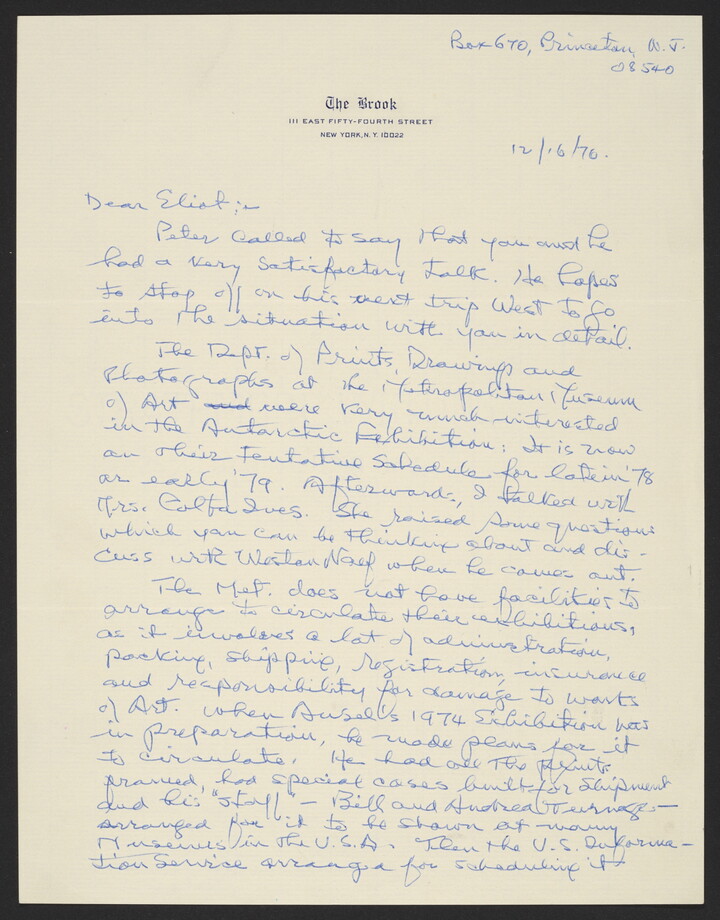 Box 670, Princeton, N.J.
08540
The Brook
111 EAST FIFTY-FOURTH STREET
NEW YORK, N.Y. 10022
12/16/76.
Dear Eliot:-
Peter called to say that you and he
had a very satisfactory talk. He hopes
to stop off on his next trip West to go
into the situation with you in detail.
The Dept. of Prints, Drawings and
Photographs at the Metropolitan Museum
of Art and were very much interested
in the Antarctic Exhibition: It is now
on their tentative schedule for late in '78
or early '79. Afterwards, I talked with
Mrs. Colta Ives. She raised some questions
which you can be thinking about and dis-
cuss with Weston Naef when he comes out.
The Met. does not have facilities to
arrange to circulate their exhibitions,
as it involves a lot of administration,
packing, shipping, registration, insurance
and responsibility for damage to works
of Art. When Ansel's 1974 Exhibition was
in preparation, he made plans for it
to circulate. He had all the prints
framed, had special cases built for shipment
and his "staff" - Bill and Andrea Turnage -
arranged for it to be shown at many
Museums in the U.S.A. Then the U.S. Informa-
tion Service arranged for scheduling it